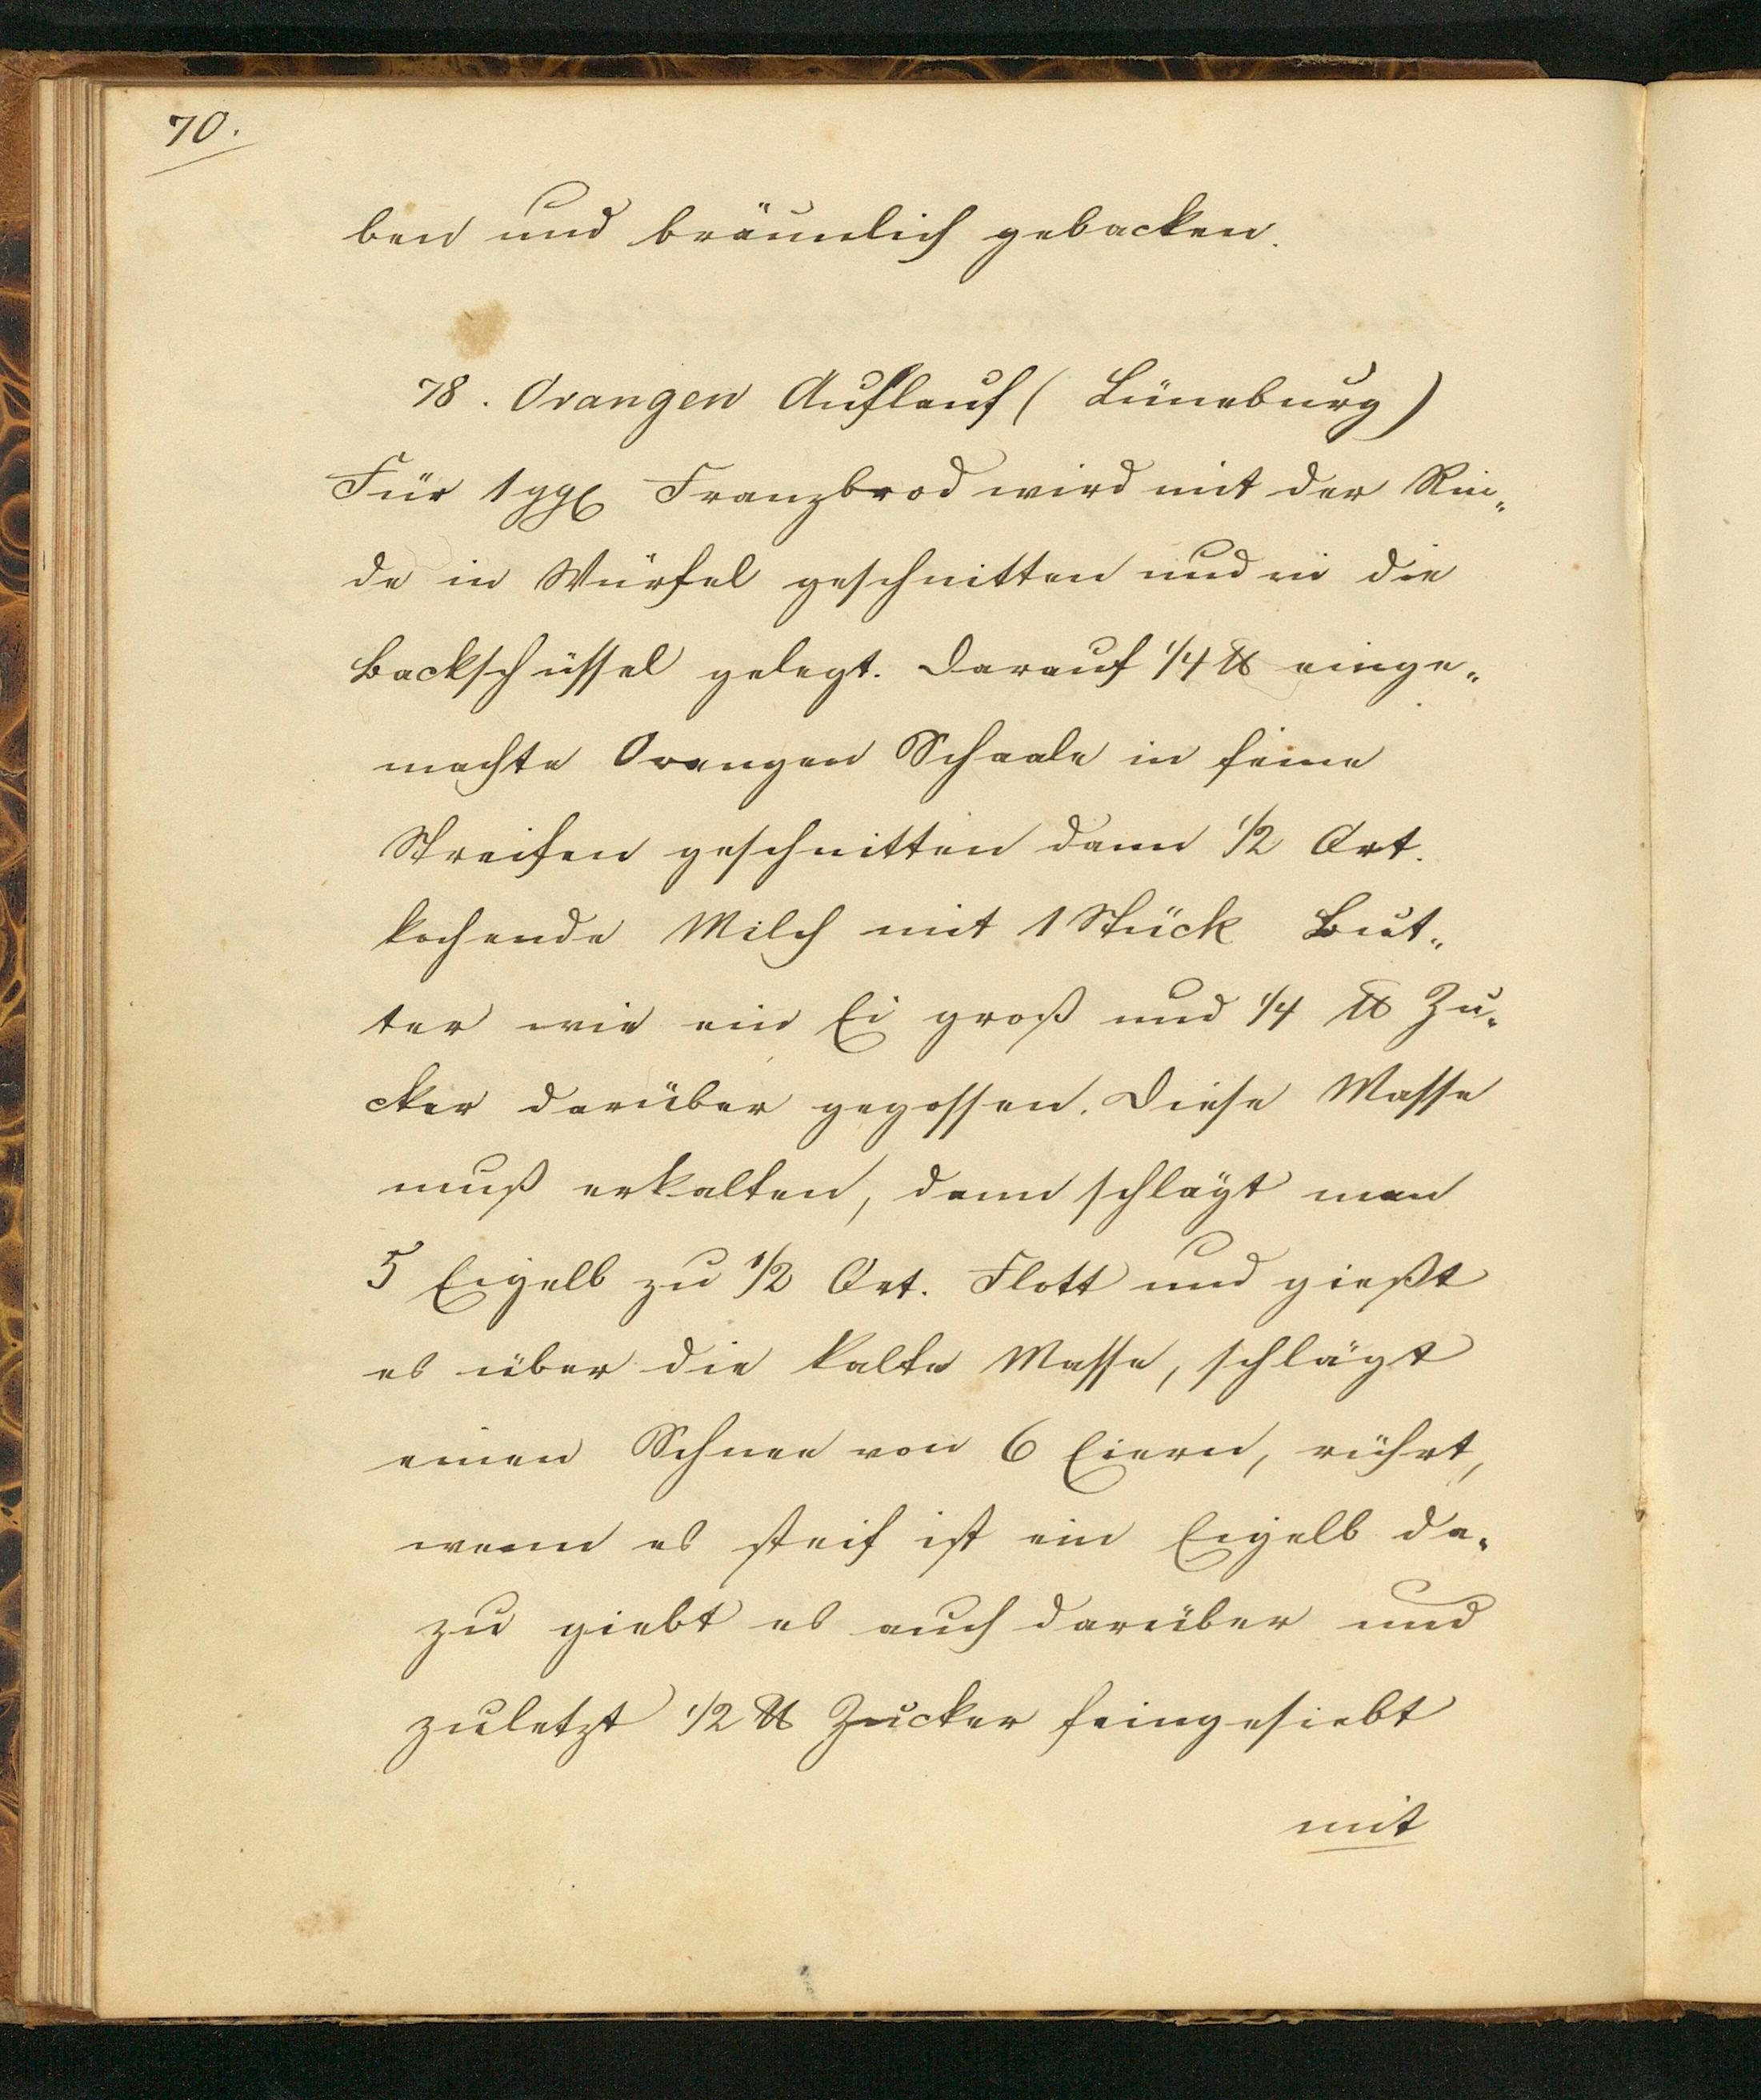 70.
ben und bräunlich gebacken.
78. Orangen Auflauf (Lüneburg)
Für 1 ggl Franzbrod wird mit der Rin„
de in Würfel geschnitten und in die
Backschüssel gelegt. Darauf 1/4 ℔ einge„
machte Orangen Schaale in feine
Streifen geschnitten dann 1/2 Ort.
kochende Milch mit 1 Stück But„
ter wie ein Ei groß und 1/4 ℔ Zu„
cker darüber gegossen. Diese Masse
muß erkalten, dann schlägt man
5 Eigelb zu 1/2 Ort. Flott und gießt
es über die kalte Masse, schlägt
einen Schnee von 6 Eiern, rührt,
wenn es steif ist ein Eigelb da„
zu giebt es auch darüber und
zuletzt 1/2 ℔ Zucker feingesiebt
mit